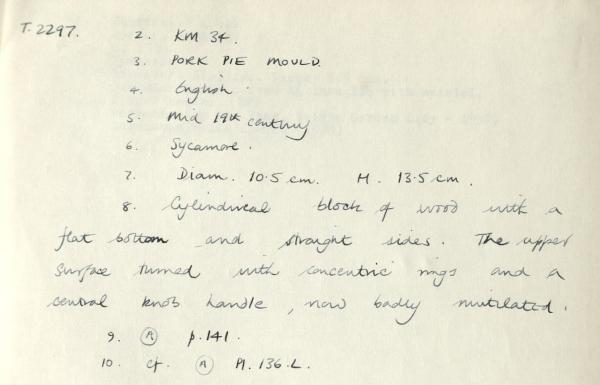 T.2297.
2. KM 34.
3. PORK PIE MOULD.
4. English.
5. Mid 19th century
6. Sycamore.
7. Diam. 10.5 cm. H. 13.5 cm.
8. Cylindrical block of wood with a
flat bottom and straight sides. The upper
surface turned with concentric rings and a
central knob handle, now badly mutilated.
9. (A) p.141.
10. cf. (A) Pl. 136.L.